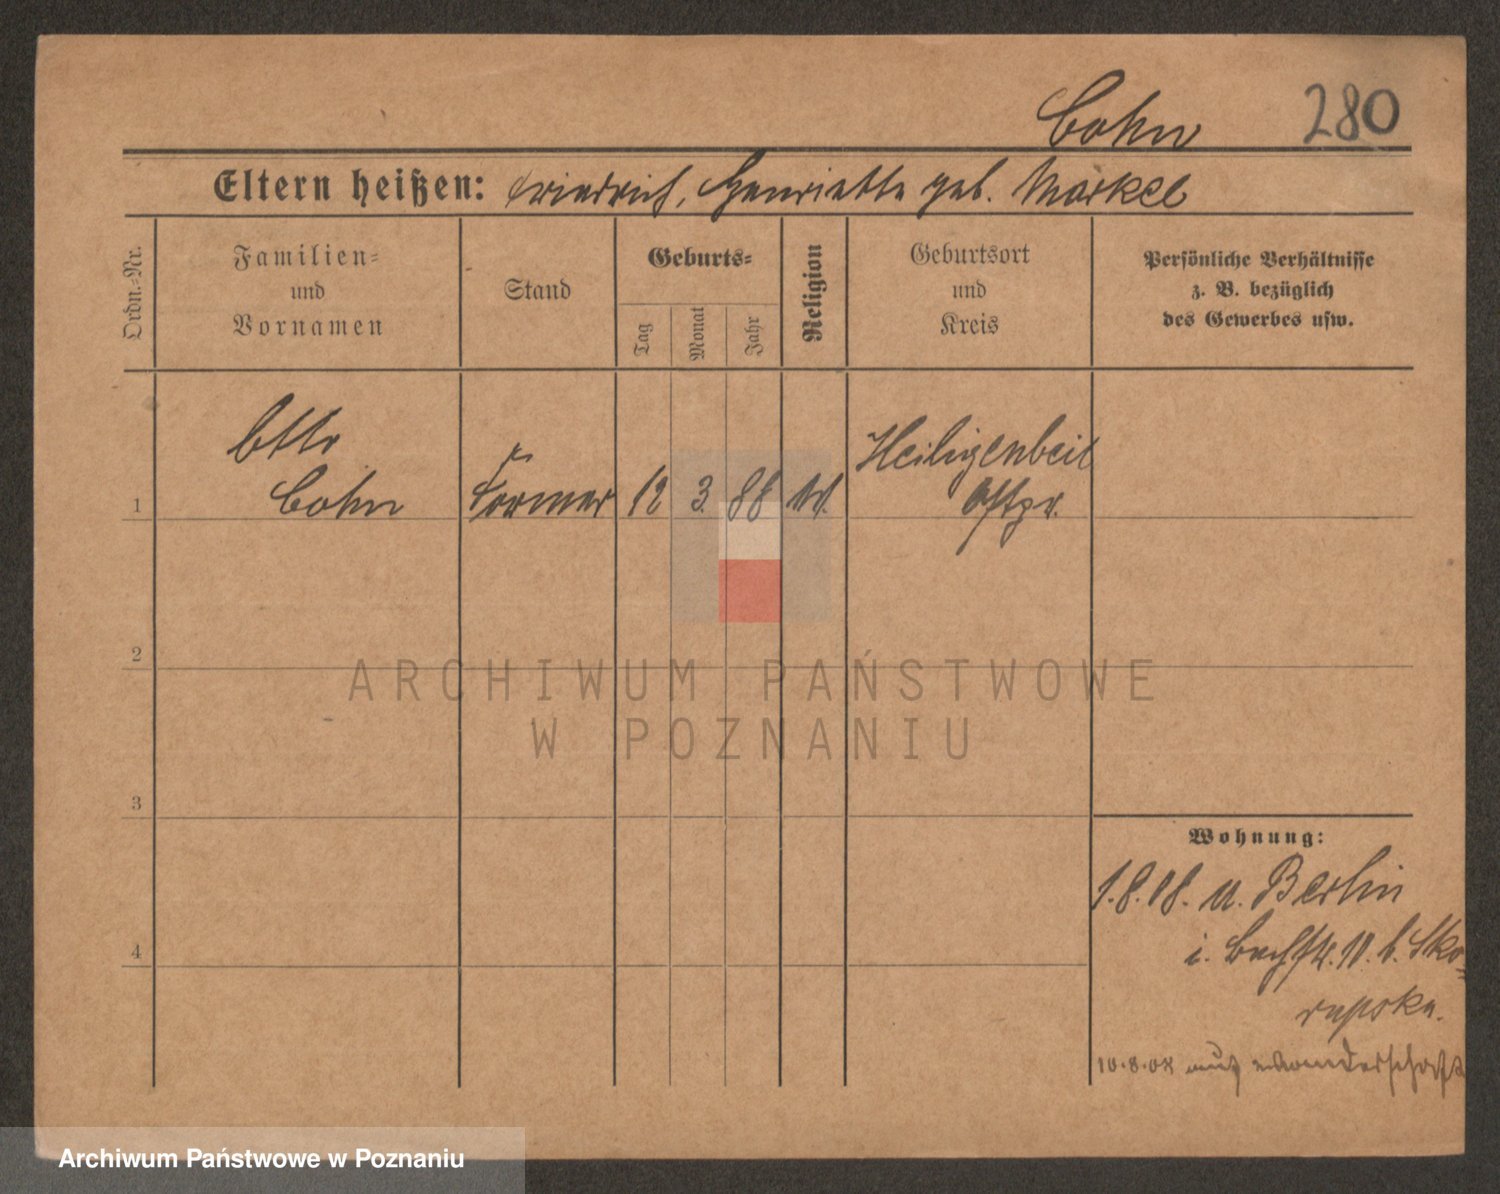 Cohn 280
Eltern heißen: Friedrich, Henriette geb. Markel
Ordn.=Nr.
Familien=
und
Vornamen
Stand
Geburts=
Tag
Monat
Jahr
Religion
Geburtsort
und
Kreis
Persönliche Verhältnisse
z. B. bezüglich
des Gewerbes usw.
Otto
Cohn
Former
12
3.
88
Heiligenbeil
Ostpr.
1
2
3
4
Wohnung:
1.8.08. a. Berlin
i. Bachstr. 10. b. Sko=
rupska.
10.8.08 auf Wanderschaft
ARCHIWUM PAŃSTWOWE
W POZNANIU
Archiwum Państwowe w Poznaniu